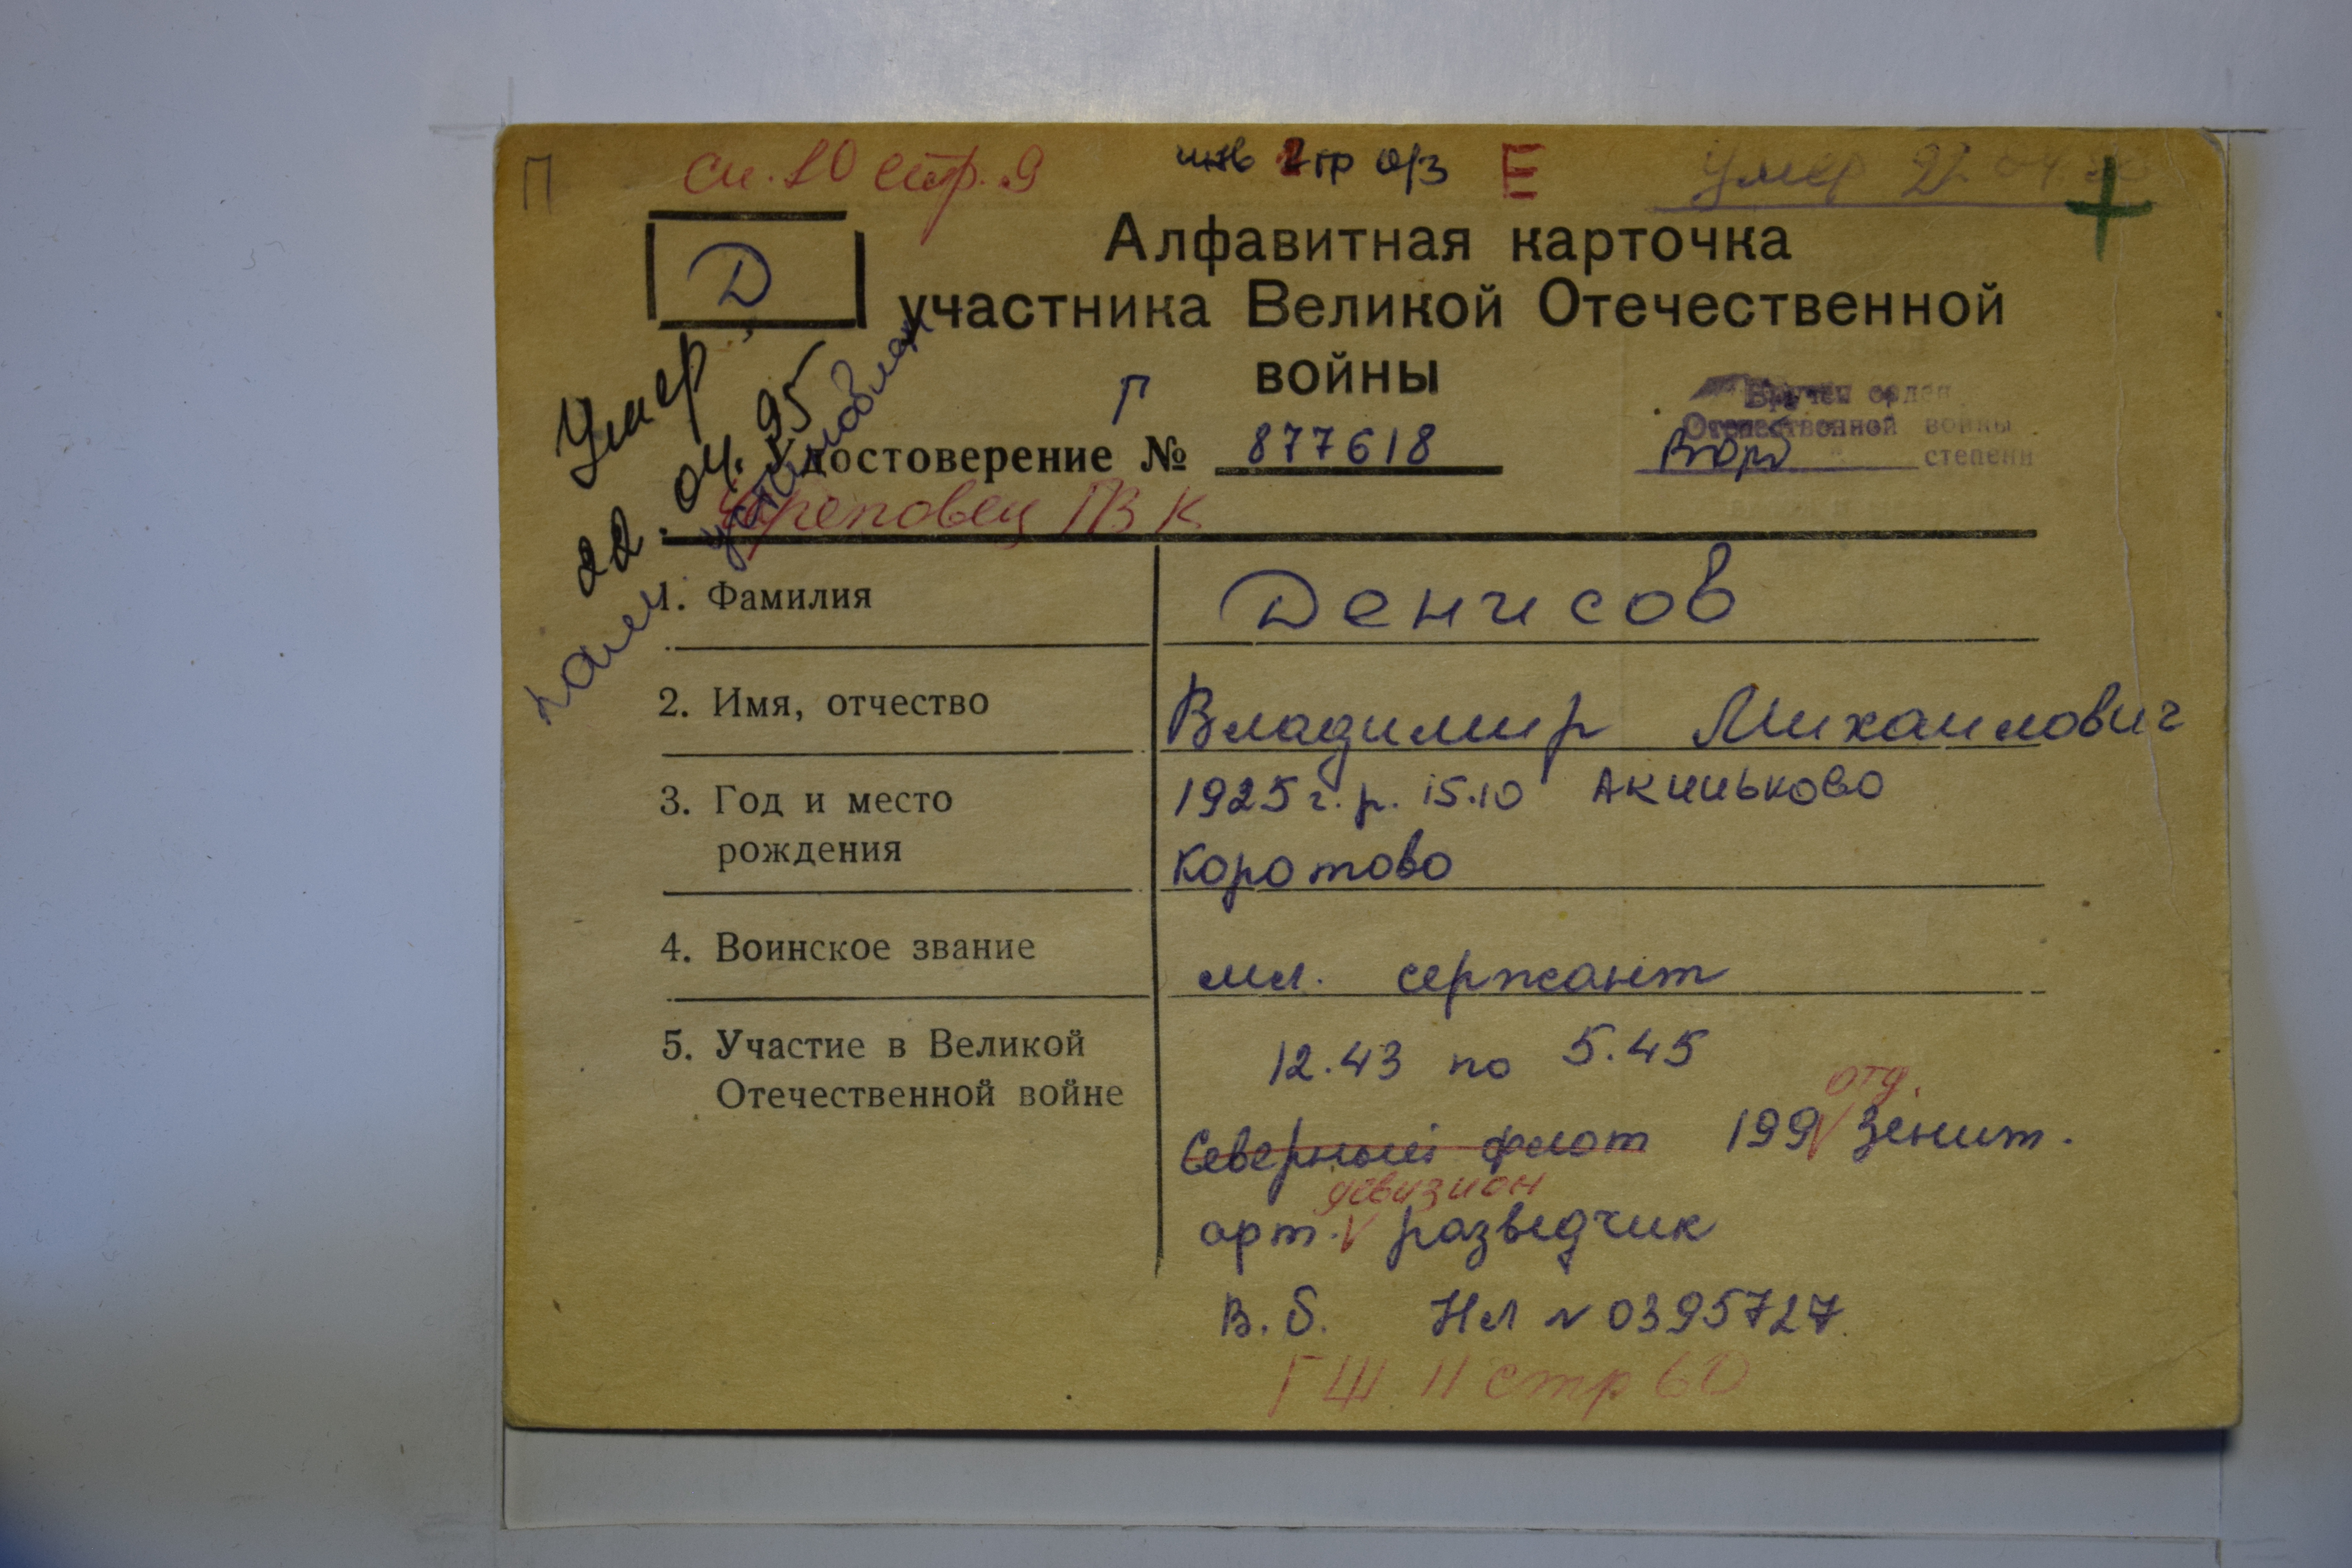 П
сп. 10 стр. 9
инв 2 гр о/з
Е
Умер 22 04.
Д
Алфавитная карточка
участника Великой Отечественной
войны
Г
Умер
22.04.95
Удостоверение № 877618
Вручен орден
Отечественной войны
степени
Череповец ГВК
памят установлен
1. Фамилия Денисов
2. Имя, отчество Владимир Михаилович
3. Год и место 1925 г.р. 15.10 Акиньково
рождения Коротово
4. Воинское звание мл. сержант
5. Участие в Великой 12.43 по 5.45
Отечественной войне
отд.
Северный флот 199 V Зенит.
девизион
арт. V разведчик
В.б. НЛ № 0395727
ГШ 11 стр 60